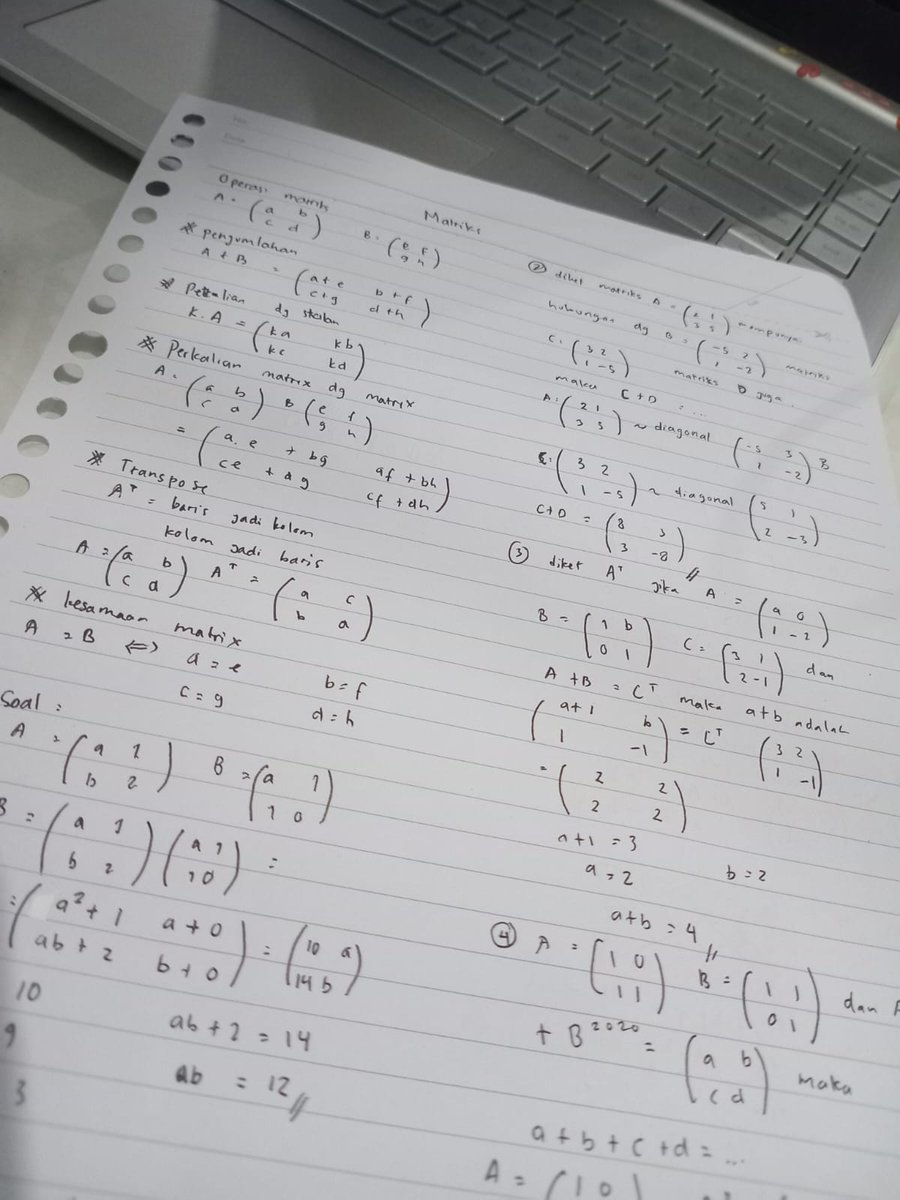 Matriks
Operasi matriks
A = (a b
c d)
B = (e f
g h)
* pengumlahan
A + B = (a+e b+f
c+g d+h)
* Perkalian dg skalar
K.A = (ka kb
kc kd)
* Perkalian matrix dg matrix
A = (a b
c d) B (e f
g h)
= (a.e + bg af + bh
ce + dg cf + dh)
* Transpose
Aᵀ = baris jadi kolom
kolom jadi baris
A = (a b
c d) Aᵀ = (a c
b d)
* kesamaan matrix
A = B ⟺ a = e b = f
c = g d = h
Soal :
A = (a 1
b 2) B = (a 1
1 0)
B = (a 1
b 2) (a 1
1 0) =
= (a²+1 a+0
ab+2 b+0) = (10 a
14 b)
10
9
3
ab + 2 = 14
ab = 12 //
② diket matriks A = (2 1
3 5) mempunyai
hubungan dg B = (-5 3
1 -2) matriks
C = (3 2
1 -5) matriks D juga
maka C+D = ...
A = (2 1
3 5) ~ diagonal (-5 3
1 -2) B
C = (3 2
1 -5) ~ diagonal (5 1
2 -3)
C+D = (8 3
3 -8) //
③ diket Aᵀ jika A = (a 0
1 -2)
B = (1 b
0 1) C = (3 1
2 -1) dan
A + B = Cᵀ maka a+b adalah
(a+1 b
1 -1) = Cᵀ (3 2
1 -1)
= (2 2
2 2)
a+1 = 3
a = 2 b = 2
a+b = 4 //
④ A = (1 0
1 1) B = (1 1
0 1) dan A
+ B²⁰²⁰ = (a b
c d) maka
a + b + c + d = ...
A = (1 0